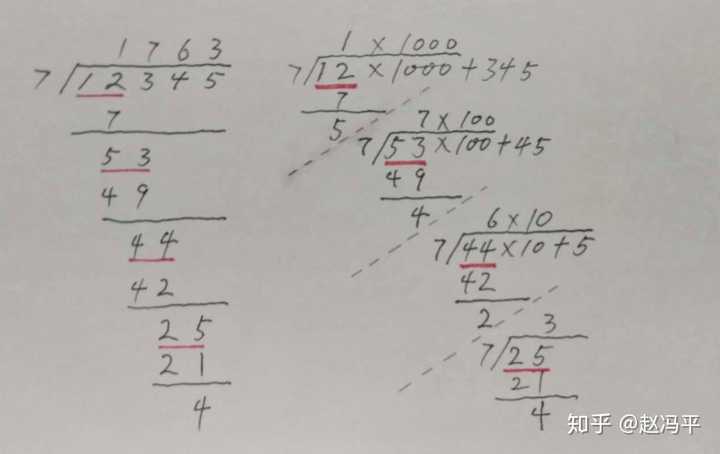 1763
7 12345
7
53
49
44
42
25
21
4
1 × 1000
7 12 × 1000 + 345
7
5
7 × 100
7 53 × 100 + 45
49
4
6 × 10
7 44 × 10 + 5
42
2
3
7 25
21
4
知乎 @赵冯平